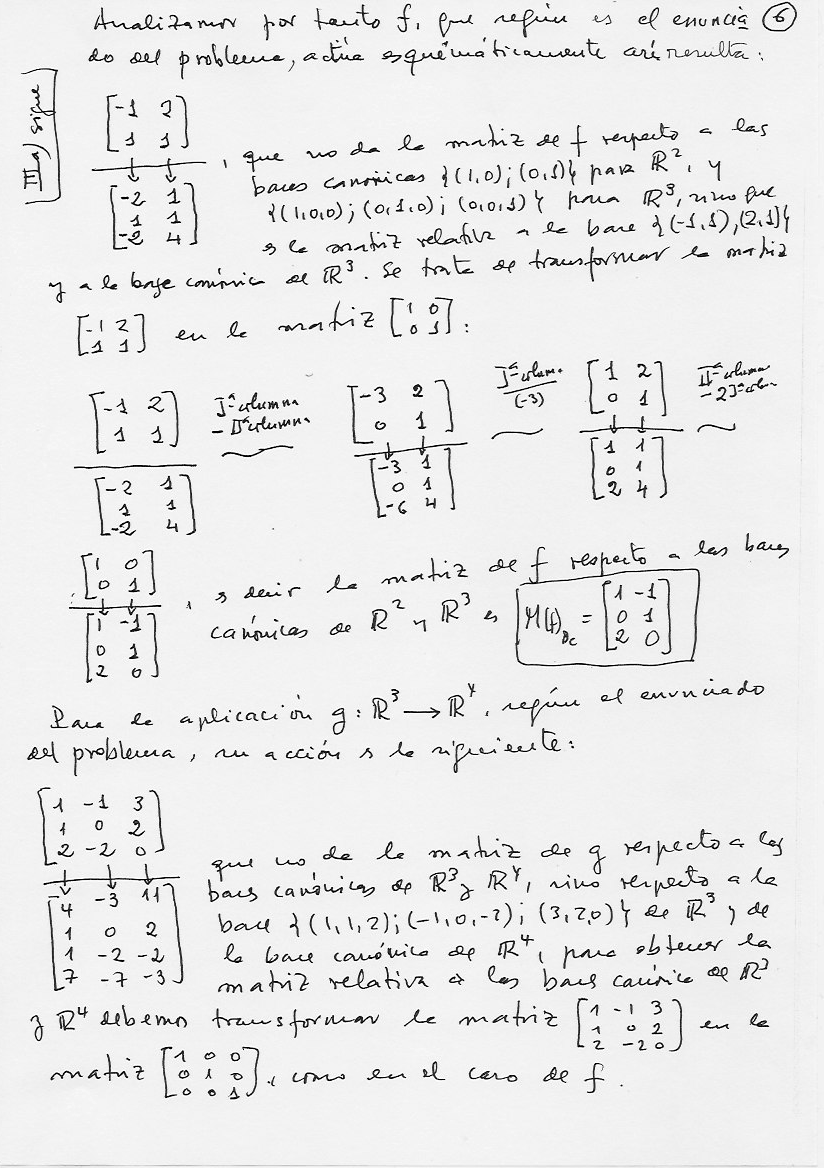 Analizamos por tanto f, que según es el enuncia 6
do del problema, actúa esquemáticamente así resulta:
III a) sigue
[-1 2]
[1 1]
↓ ↓
[-2 1]
[1 1]
[-2 4]
, que no da la matriz de f respecto a las
bases canónicas {(1,0); (0,1)} para R², y
{(1,0,0); (0,1,0); (0,0,1)} para R³, sino que
es la matriz relativa a la base {(-1,1),(2,1)}
y a la base canónica de R³. Se trata de transformar la matriz
[-1 2] en la matriz [1 0] :
[1 1] [0 1]
[-1 2] Iª columna [-3 2] Iª colum. [1 2] IIª columna
[1 1] - IIª columna [0 1] (-3) [0 1] - 2 Iª colu.
~ ↓ ↓ ~ ↓ ↓ ~
[-2 1] [-3 1] [1 1]
[1 1] [0 1] [0 1]
[-2 4] [-6 4] [2 4]
[1 0]
[0 1]
↓ ↓
[1 -1]
[0 1]
[2 0]
, es decir la matriz de f respecto a las bases
canónicas de R² y R³ es M(f)Bc = [1 -1]
[0 1]
[2 0]
Para la aplicación g: R³ → R⁴, según el enunciado
del problema, su acción es la siguiente:
[1 -1 3]
[1 0 2]
[2 -2 0]
↓ ↓ ↓
[4 -3 11]
[1 0 2]
[1 -2 -2]
[7 -7 -3]
que no da la matriz de g respecto a las
bases canónicas de R³ y R⁴, sino respecto a la
base {(1,1,2); (-1,0,-2); (3,2,0)} de R³ y de
la base canónica de R⁴, para obtener la
matriz relativa a las bases canónica de R³
y R⁴ debemos transformar la matriz [1 -1 3] en la
[1 0 2]
[2 -2 0]
matriz [1 0 0] , como en el caso de f.
[0 1 0]
[0 0 1]